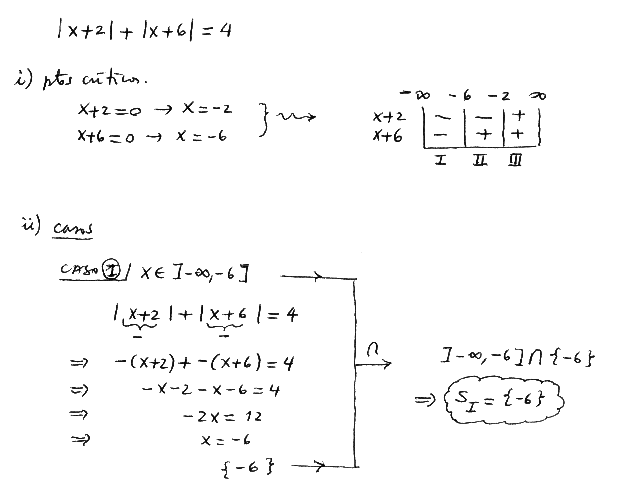 |x+2| + |x+6| = 4
i) pts críticos.
x+2=0 → x=-2
x+6=0 → x=-6
-∞ -6 -2 ∞
x+2 | - | - | + |
x+6 | - | + | + |
I II III
ii) casos
CASO I / x∈ ]-∞,-6]
|x+2| + |x+6| = 4
- -
⇒ -(x+2)+-(x+6)=4
⇒ -x-2-x-6=4
⇒ -2x = 12
⇒ x=-6
{-6}
∩
]-∞,-6]∩{-6}
⇒ S_I = {-6}